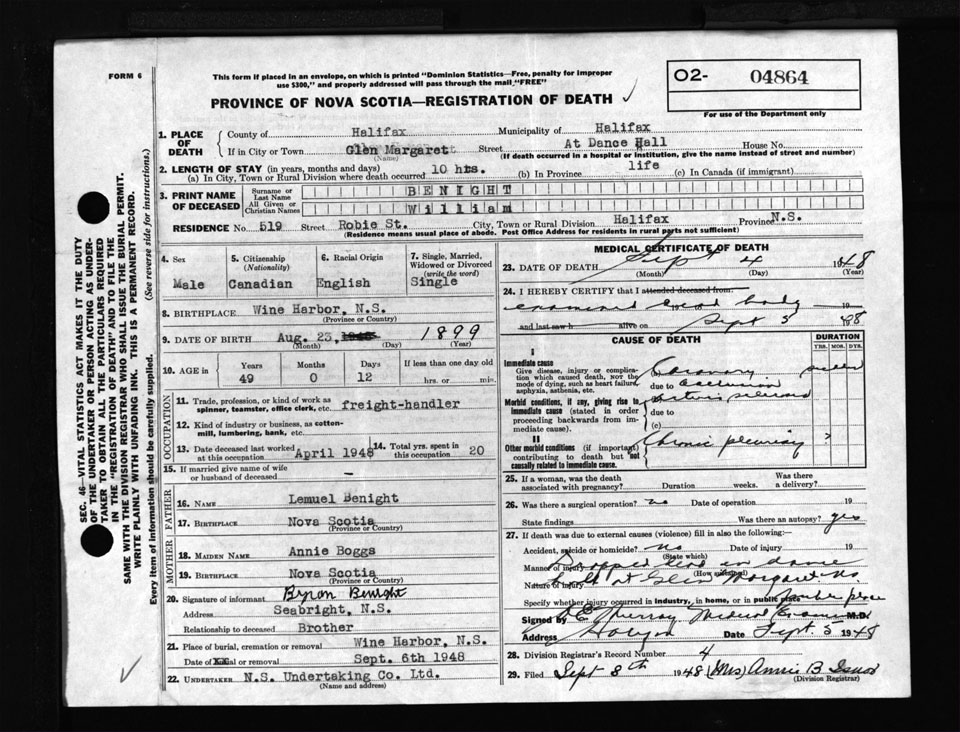 FORM 6
This form if placed in an envelope, on which is printed "Dominion Statistics—Free, penalty for improper
use $300," and properly addressed will pass through the mail "FREE"
PROVINCE OF NOVA SCOTIA—REGISTRATION OF DEATH
O2- 04864
For use of the Department only
SEC. 46—VITAL STATISTICS ACT MAKES IT THE DUTY
OF THE UNDERTAKER OR PERSON ACTING AS UNDER-
TAKER TO OBTAIN ALL THE PARTICULARS REQUIRED
IN THE "REGISTRATION OF DEATH" AND TO FILE THE
SAME WITH THE DIVISION REGISTRAR WHO SHALL ISSUE THE BURIAL PERMIT.
WRITE PLAINLY WITH UNFADING INK. THIS IS A PERMANENT RECORD.
Every item of information should be carefully supplied. (See reverse side for instructions.)
1. PLACE OF DEATH
County of Halifax Municipality of Halifax
If in City or Town Glen Margarett Street At Dance Hall House No.
(Name) (If death occurred in a hospital or institution, give the name instead of street and number)
2. LENGTH OF STAY (in years, months and days)
(a) In City, Town or Rural Division where death occurred 10 hrs. (b) In Province life (c) In Canada (if immigrant)
3. PRINT NAME OF DECEASED
Surname or Last Name BENIGHT
All Given or Christian Names William
RESIDENCE No. 519 Street Robie St. City, Town or Rural Division Halifax Province N.S.
(Residence means usual place of abode. Post Office Address for residents in rural parts not sufficient)
4. Sex Male
5. Citizenship (Nationality) Canadian
6. Racial Origin English
7. Single, Married, Widowed or Divorced (write the word) Single
8. BIRTHPLACE Wine Harbor, N.S.
(Province or Country)
9. DATE OF BIRTH Aug. 23, 1899
(Month) (Day) (Year)
10. AGE in Years 49 Months 0 Days 12 If less than one day old hrs. or min.
OCCUPATION
11. Trade, profession, or kind of work as
spinner, teamster, office clerk, etc. freight-handler
12. Kind of industry or business, as cotton-
mill, lumbering, bank, etc.
13. Date deceased last worked at this occupation April 1948
14. Total yrs. spent in this occupation 20
15. If married give name of wife
or husband of deceased —
FATHER
16. NAME Lemuel Benight
17. BIRTHPLACE Nova Scotia
(Province or Country)
MOTHER
18. MAIDEN NAME Annie Boggs
19. BIRTHPLACE Nova Scotia
(Province or Country)
20. Signature of informant Byron Benight
Address Seabright, N.S.
Relationship to deceased Brother
21. Place of burial, cremation or removal Wine Harbor, N.S.
Date of burial or removal Sept. 6th 1948
22. UNDERTAKER N.S. Undertaking Co. Ltd.
(Name and address)
MEDICAL CERTIFICATE OF DEATH
23. DATE OF DEATH Sept 4 1948
(Month) (Day) (Year)
24. I HEREBY CERTIFY that I attended deceased from:
examined dead body 19
and last saw h alive on Sept 5 1948
CAUSE OF DEATH
DURATION
YRS. MOS. DYS.
I
Immediate cause
Give disease, injury or complica-
tion which caused death, NOT the
mode of dying, such as heart failure,
asphyxia, asthenia, etc.
Coronary sudden
due to occlusion
Morbid conditions, if any, giving rise to
immediate cause (stated in order
proceeding backwards from im-
mediate cause).
arterio sclerosis
due to
(c)
II
Other morbid conditions (if important)
contributing to death but not
causally related to immediate cause.
Chronic pleurisy ?
25. If a woman, was the death associated with pregnancy? Duration weeks. Was there a delivery?
26. Was there a surgical operation? no Date of operation 19
State findings Was there an autopsy? yes
27. If death was due to external causes (violence) fill in also the following:—
Accident, suicide or homicide? no Date of injury 19
(State which)
Manner of injury Dropped dead in dance
(How sustained)
Nature of injury hall at Glen Margaret NS
Specify whether injury occurred in industry, in home, or in public place public place
Signed by Murray Medical Examiner M.D.
Address Date Sept. 5 1948
28. Division Registrar's Record Number 4
29. Filed Sept 8th 1948 (Mrs) Annie B
(Division Registrar)